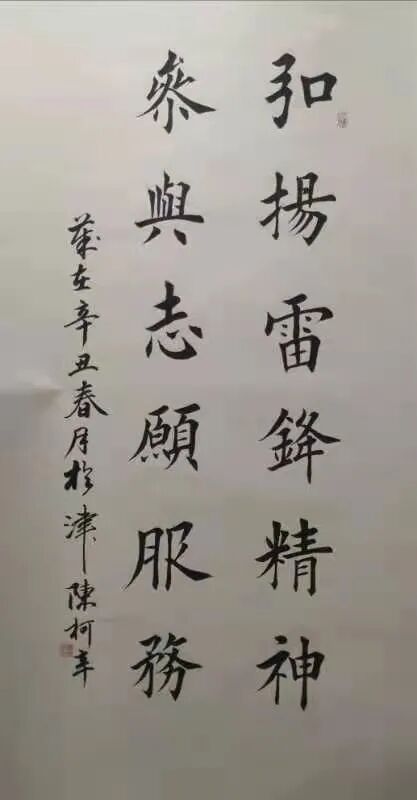 弘揚雷鋒精神
參與志願服務
歲在辛丑春月於津陳柯年